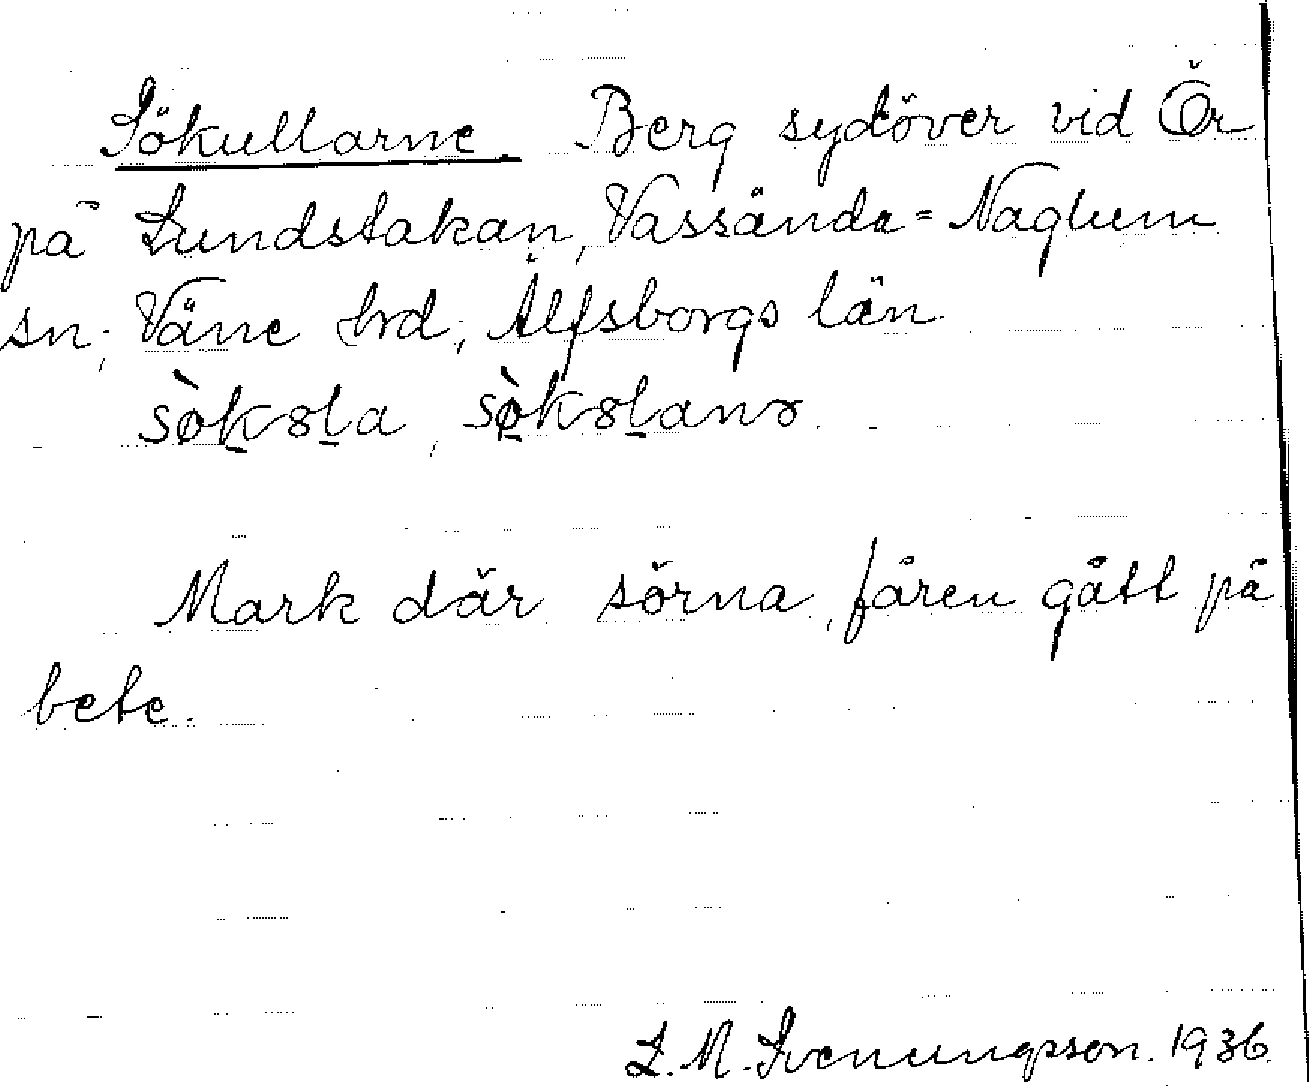 Sökullarne. Berg sydöver vid Ör
på Lundstakan, Vassända=Naglum
sn, Väne hrd, Älfsborgs län.
Mark där sörna, fåren gått på
bete.
L. M. Svenungsson. 1936.